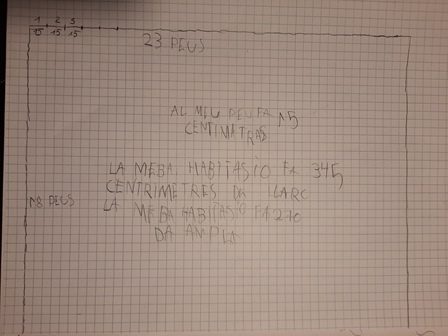 1 2 3
15 15 15
23 PEUS
AL MEU PEU FA 15
CENTIMATRAS
LA MEBA HABITASIÓ FA 345
CENTRIMETRES DA LLARC
18 PEUS
LA MEBA HABITASIÓ FA 270
DA AMPLA